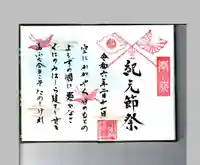 令和六年二月十一日
紀元節祭
空にかがやく日のもとの
よろずの國にたぐひなき
くにのみはしらたてし世を
あふぐ今日こそたのしけれ